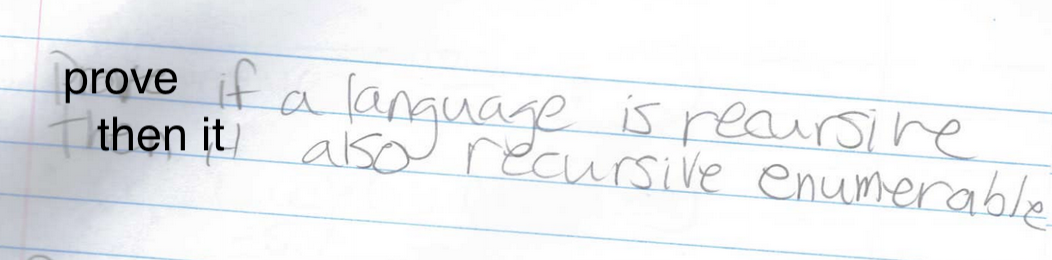 prove if a language is recursive
then it also recursive enumerable